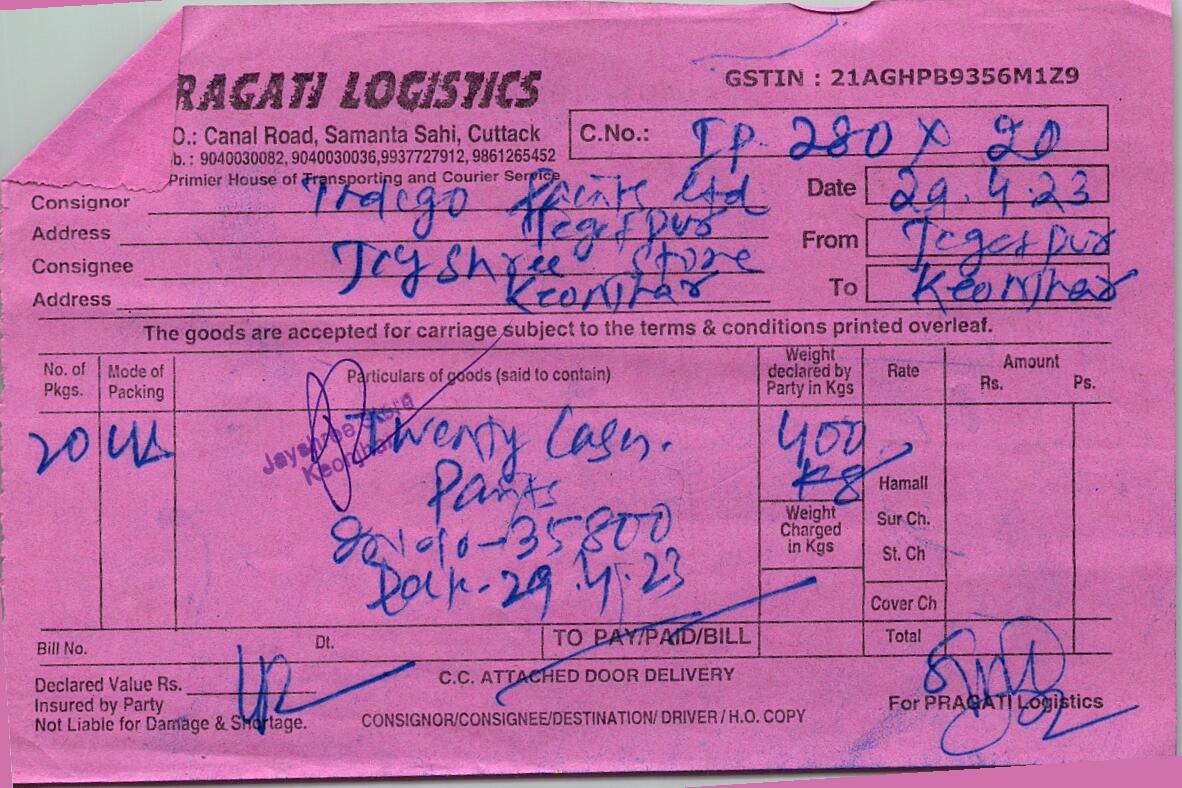 RAGATI LOGISTICS
GSTIN : 21AGHPB9356M1Z9
O.: Canal Road, Samanta Sahi, Cuttack
b. : 9040030082, 9040030036,9937727912, 9861265452
Primier House of Transporting and Courier Service
C.No.: IP. 280 X 20
Consignor Ltd
Date 29.4.23
Address
From
Consignee Jcyshree Store
Address Keonjhar
To Keonjhar
The goods are accepted for carriage subject to the terms & conditions printed overleaf.
No. of Pkgs.
Mode of Packing
Particulars of goods (said to contain)
Weight declared by Party in Kgs
Rate
Amount
Rs. Ps.
20
Twenty Cases.
400 Kg
Jayshree Store
Keonjhar
Hamall
35800
Weight Charged in Kgs
Sur Ch.
St. Ch
29.4.23
Cover Ch
Bill No. Dt. TO PAY/PAID/BILL Total
Declared Value Rs.
C.C. ATTACHED DOOR DELIVERY
Insured by Party
For PRAGATI Logistics
Not Liable for Damage & Shortage.
CONSIGNOR/CONSIGNEE/DESTINATION/ DRIVER / H.O. COPY